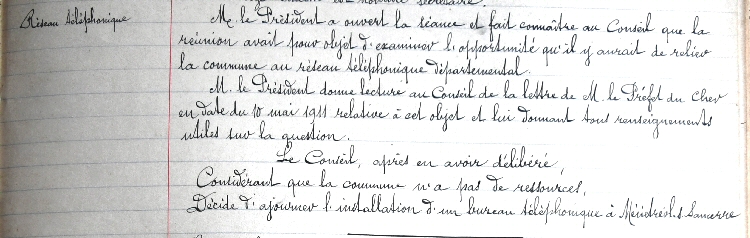 nommé secrétaire.
Réseau téléphonique
M. le Président a ouvert la séance et fait connaître au Conseil que la
réunion avait pour objet d'examiner l'opportunité qu'il y aurait de relier
la commune au réseau téléphonique départemental.
M. le Président donne lecture au Conseil de la lettre de M. le Préfet du Cher
en date du 10 mai 1911 relative à cet objet et lui donnant tous renseignements
utiles sur la question.
Le Conseil, après en avoir délibéré,
Considérant que la commune n'a pas de ressources,
Décide d'ajourner l'installation d'un bureau téléphonique à Ménétréol s. Sancerre